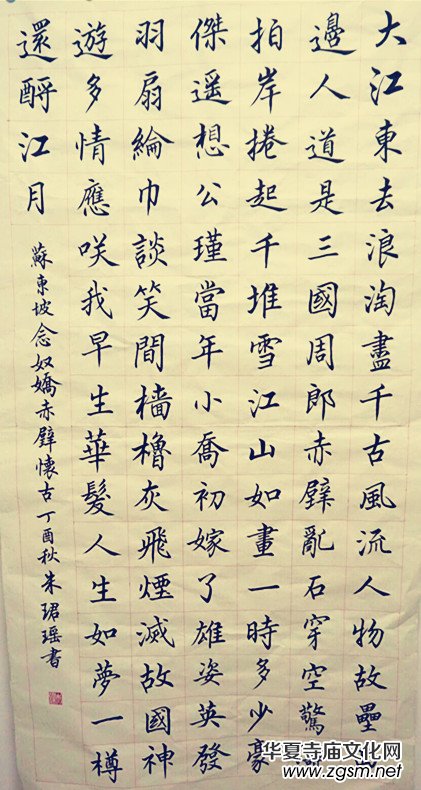 大江東去浪淘盡千古風流人物故壘西
邊人道是三國周郎赤壁亂石穿空驚濤
拍岸捲起千堆雪江山如畫一時多少豪
傑遥想公瑾當年小喬初嫁了雄姿英發
羽扇綸巾談笑間檣櫓灰飛煙滅故國神
遊多情應咲我早生華髮人生如夢一樽
還酹江月
蘇東坡念奴嬌赤壁懷古丁酉秋朱珺瑶書
华夏寺庙文化网
www.zgsm.net